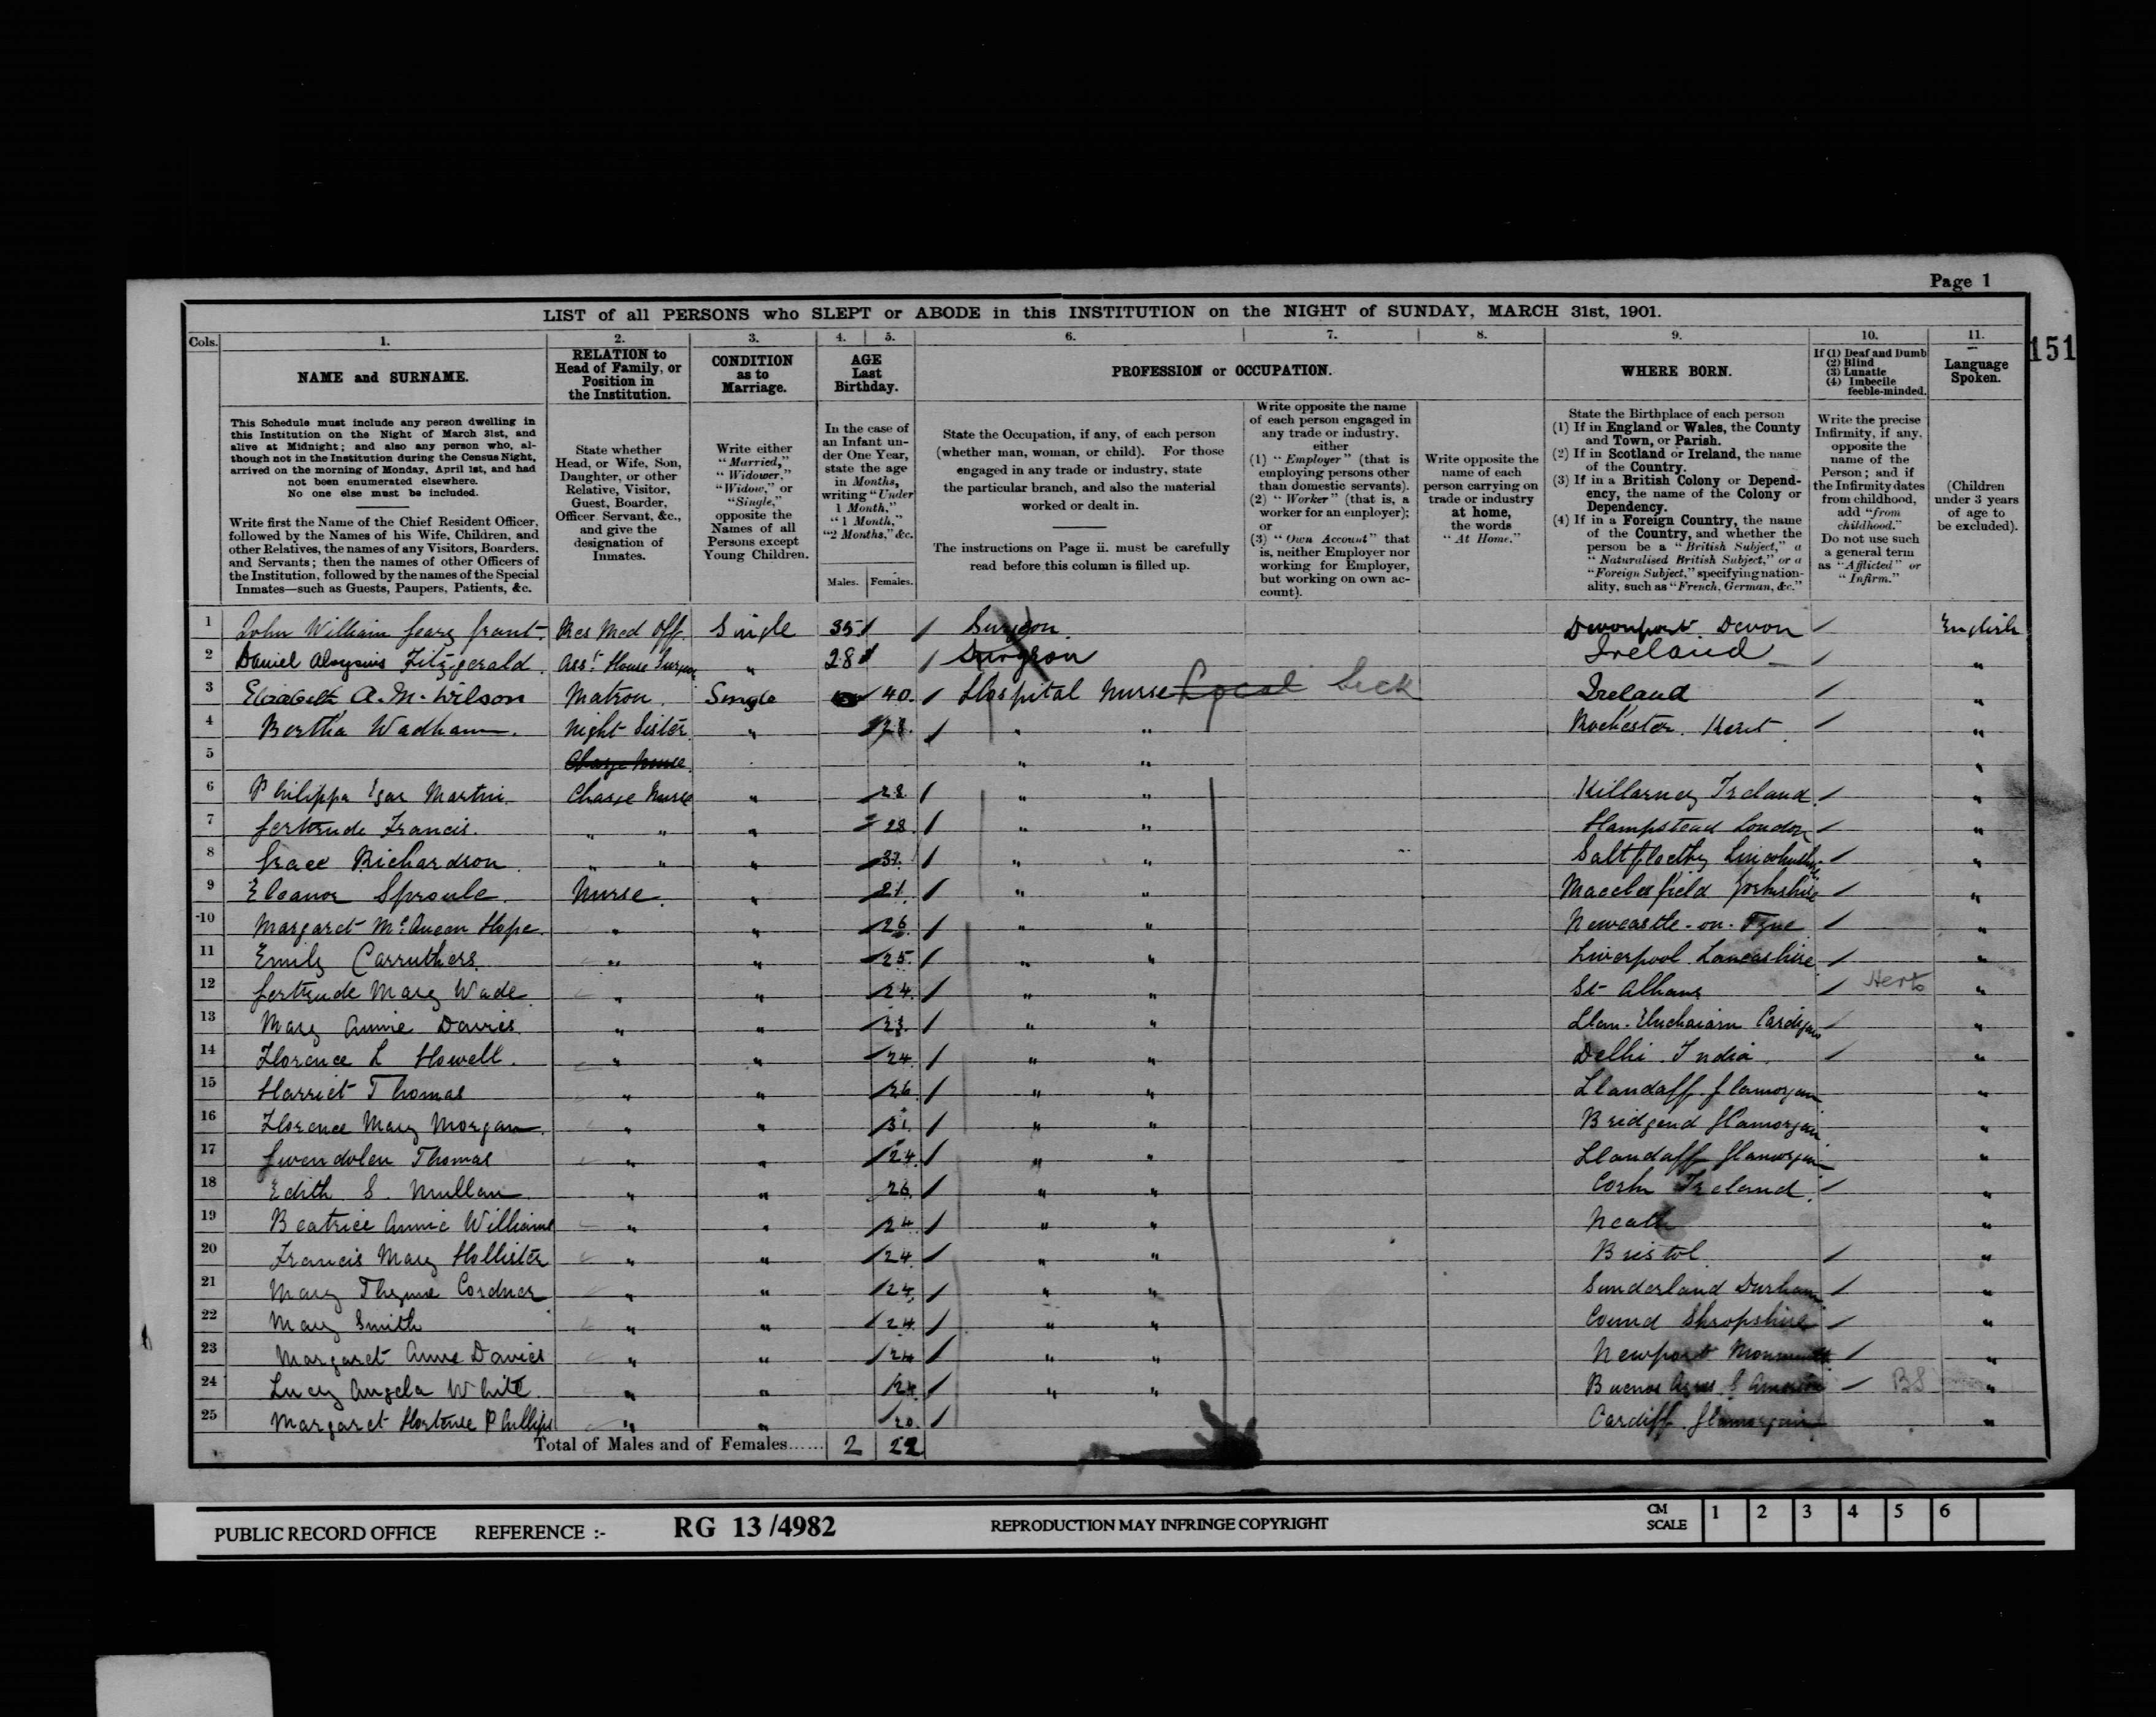 Page 1
151
LIST of all PERSONS who SLEPT or ABODE in this INSTITUTION on the NIGHT of SUNDAY, MARCH 31st, 1901.
Cols. 1. 2. 3. 4. 5. 6. 7. 8. 9. 10. 11.
NAME and SURNAME.
This Schedule must include any person dwelling in
this Institution on the Night of March 31st, and
alive at Midnight; and also any person who, al-
though not in the Institution during the Census Night,
arrived on the morning of Monday, April 1st, and had
not been enumerated elsewhere.
No one else must be included.
Write first the Name of the Chief Resident Officer,
followed by the Names of his Wife, Children, and
other Relatives, the names of any Visitors, Boarders,
and Servants; then the names of other Officers of
the Institution, followed by the names of the Special
Inmates—such as Guests, Paupers, Patients, &c.
RELATION to
Head of Family, or
Position in
the Institution.
State whether
Head, or Wife, Son,
Daughter, or other
Relative, Visitor,
Guest, Boarder,
Officer, Servant, &c.,
and give the
designation of
Inmates.
CONDITION
as to
Marriage.
Write either
"Married,"
"Widower,"
"Widow," or
"Single,"
opposite the
Names of all
Persons except
Young Children.
AGE
Last
Birthday.
In the case of
an Infant un-
der One Year,
state the age
in Months,
writing "Under
1 Month,"
"1 Month,"
"2 Months," &c.
Males. Females.
PROFESSION or OCCUPATION.
State the Occupation, if any, of each person
(whether man, woman, or child). For those
engaged in any trade or industry, state
the particular branch, and also the material
worked or dealt in.
The instructions on Page ii. must be carefully
read before this column is filled up.
Write opposite the name
of each person engaged in
any trade or industry.
either
(1) "Employer" (that is
employing persons other
than domestic servants).
(2) "Worker" (that is, a
worker for an employer);
or
(3) "Own Account" that
is, neither Employer nor
working for Employer,
but working on own ac-
count).
Write opposite the
name of each
person carrying on
trade or industry
at home,
the words
"At Home."
WHERE BORN.
State the Birthplace of each person
(1) If in England or Wales, the County
and Town, or Parish.
(2) If in Scotland or Ireland, the name
of the Country.
(3) If in a British Colony or Depend-
ency, the name of the Colony or
Dependency.
(4) If in a Foreign Country, the name
of the Country, and whether the
person be a "British Subject," a
"Naturalised British Subject," or a
"Foreign Subject," specifying nation-
ality, such as "French, German, &c."
If (1) Deaf and Dumb
(2) Blind
(3) Lunatic
(4) Imbecile
feeble-minded.
Write the precise
Infirmity, if any,
opposite the
name of the
Person; and if
the Infirmity dates
from childhood,
add "from
childhood."
Do not use such
a general term
as "Afflicted" or
"Infirm."
Language
Spoken.
(Children
under 3 years
of age to
be excluded).
1 John William Geary Grant. Res Med Off. Single 35 Surgeon. Devonport. Devon English
2 Daniel Aloysius Fitzgerald. Asst House Surgeon " 28 Surgeon Ireland "
3 Elizabeth A. M. Wilson Matron. Single 40. Hospital Nurse Local Sick Ireland "
4 Bertha Wadham. Night Sister. " 28. " " Rochester. Kent "
5 Charge Nurse. " " "
6 Philippa Martin. Charge Nurse " 28. " " Killarney Ireland. "
7 Gertrude Francis. " " " 28. " " Hampstead London "
8 Grace Richardson. " " " 37. " " Saltfleetby Lincolnshire "
9 Eleanor Sproule. Nurse. " 27. " " Macclesfield Yorkshire "
10 Margaret McQueen Hope. " " 26. " " Newcastle-on-Tyne "
11 Emily Carruthers. " " 25. " " Liverpool Lancashire "
12 Gertrude Mary Wade. " " 24. " " St Albans Herts "
13 Mary Annie Davies. " " 23. " " Cardigan "
14 Florence L Howell. " " 24. " " Delhi. India. "
15 Harriet Thomas " " 26. " " Llandaff Glamorgan "
16 Florence Mary Morgan. " " 31. " " Bridgend Glamorgan "
17 Gwendolen Thomas " " 24. " " Llandaff Glamorgan "
18 Edith S. Mullan. " " 26. " " Cork Ireland. "
19 Beatrice Annie Williams " " 24 " " Neath "
20 Francis Mary Hollister " " 24. " " Bristol. "
21 Mary Thynne Cordner " " 24. " " Sunderland Durham "
22 Mary Smith " " 24. " " Cound Shropshire "
23 Margaret Anne Davies " " 24 " " Newport Monmouth "
24 Lucy Angela White. " " 24. " " Buenos Ayres S America BS "
25 Margaret Hortense Phillips " " 20. Cardiff. Glamorgan "
Total of Males and of Females...... 2 22
PUBLIC RECORD OFFICE REFERENCE :- RG 13/4982 REPRODUCTION MAY INFRINGE COPYRIGHT CM SCALE 1 2 3 4 5 6